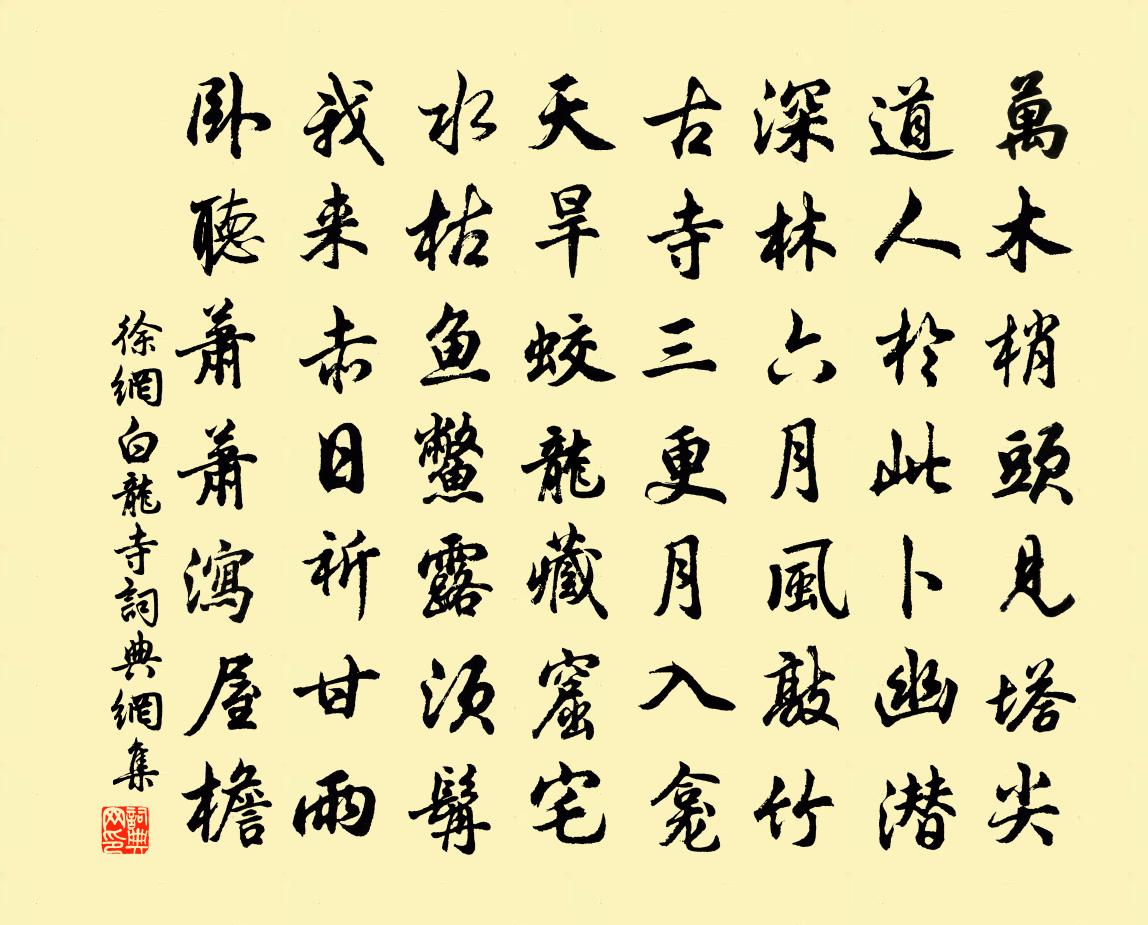 萬木梢頭見塔尖
道人於此卜幽潜
深林六月風敲竹
古寺三更月入龕
天旱蛟龍藏窟宅
水枯魚鱉露須髯
我来赤日祈甘雨
卧聽蕭蕭瀉屋檐
徐網白龍寺詞典網集
詞典
网印